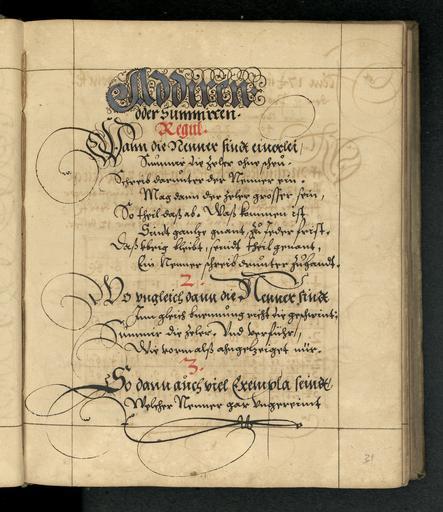 Addiren
oder Summiren.
Regul.
Wann die Nenner sindt einerlei,
Summir die zeler ohne scheu.
Schreib darunter der Nenner ein.
Mag dann der zeler grösser sein,
So theil daß ab. Waß kommen ist
Sindt gantze gnant, zu jeder frist.
Daß vberig bleibt, seindt theil genant,
Ein Nenner schreib drunter zuhandt.
2.
Wo vngleich dann die Nenner sindt
Zum gleich benennung richt sie geschwint;
Summir die zeler. Vnd verführ,
Wie vormalß ahngezeiget nur.
3.
So dann auch viel Exempla seindt,
Welcher Nenner gar vngereimt
31